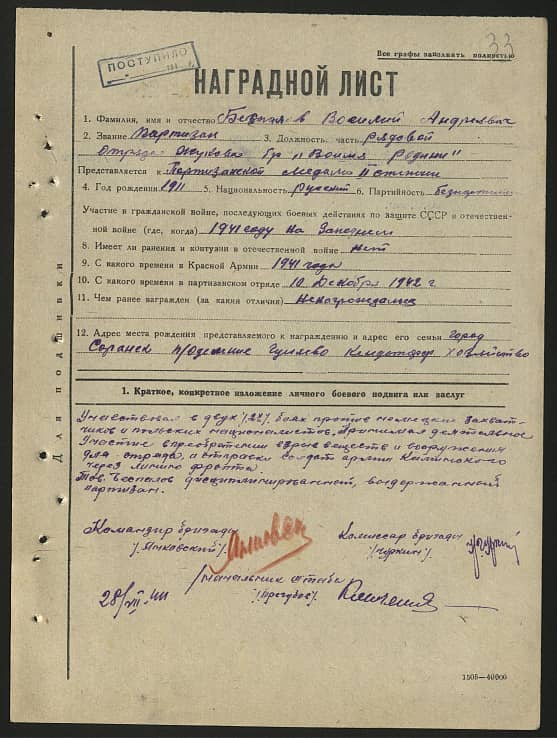 33
Все графы заполнять полностью
ПОСТУПИЛО
НАГРАДНОЙ ЛИСТ
1. Фамилия, имя и отчество Василий Андреевич
2. Звание Партизан 3. Должность, часть Рядовой
Отряда бр. "Во имя Родины"
Представляется к Партизанской медали II степени
4. Год рождения 1911 5. Национальность Русский 6. Партийность Беспартийн
Участие в гражданской войне, последующих боевых действиях по защите СССР и отечествен-
ной войне (где, когда) 1941 году на Западном
8. Имеет ли ранения и контузии в отечественной войне Нет
9. С какого времени в Красной Армии 1941 года
10. С какого времени в партизанском отряде 10 декабря 1942 г
11. Чем ранее награжден (за какие отличия) Ненагрождался
12. Адрес места рождения представляемого к награждению и адрес его семьи город
Саранск хозяйство
Для подшивки
1. Краткое, конкретное изложение личного боевого подвига или заслуг
Участвовал в двух /2/ боях против немецких захват-
чиков и польских националистов. Принимал деятельное
участие в приобретении взрыввеществ и вооружения
для отряда, и отправки солдат армии Калинского
через линию фронта.
Тов. Беспалов дисциплинированный, выдержанный
партизан.
Командир бригады
/Янковский/
Комиссар бригады
/Чуркин/
Начальник штаба
28/VII-44
1505—40000